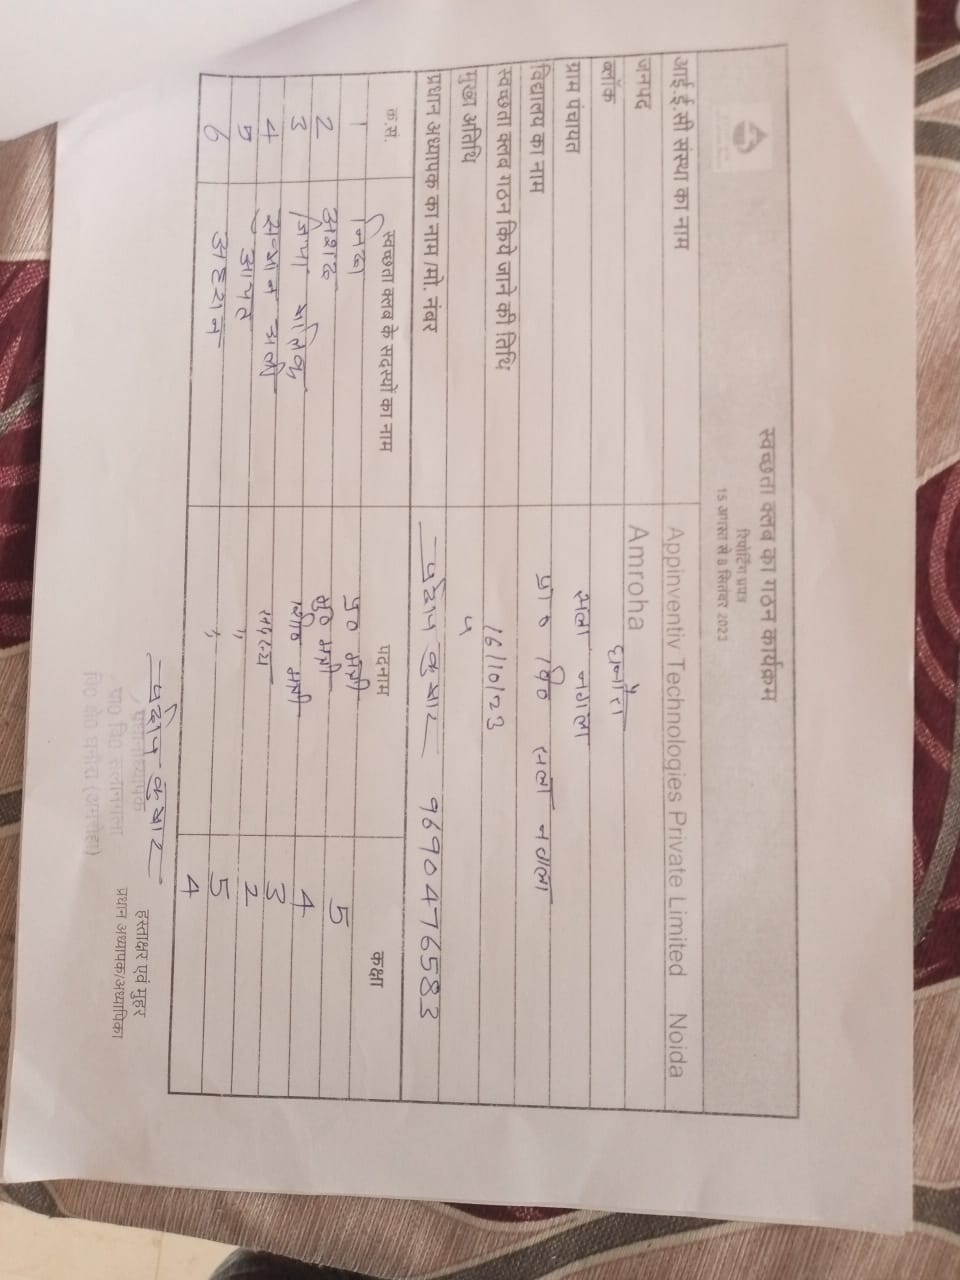 स्वच्छता क्लब का गठन कार्यक्रम
रिपोर्टिंग प्रपत्र
15 अगस्त से 8 सितंबर 2023
आई.ई.सी संस्था का नाम Appinventiv Technologies Private Limited Noida
जनपद Amroha
ब्लॉक धनौरा
ग्राम पंचायत सला नगला
विद्यालय का नाम प्रा० वि० सला नगला
स्वच्छता क्लब गठन किये जाने की तिथि 16/10/23
मुख्य अतिथि
प्रधान अध्यापक का नाम /मो. नंबर प्रदीप कुमार 9690476583
क.स. स्वच्छता क्लब के सदस्यों का नाम पदनाम कक्षा
1 निदा प्र० मंत्री 5
2 अशद मंत्री 4
3 मंत्री 3
4 अली सदस्य 2
5 आयत ,, 5
6 ,, 4
प्रदीप कुमार
प्रधानाध्यापक
हस्ताक्षर एवं मुहर
प्रधान अध्यापक/अध्यापिका